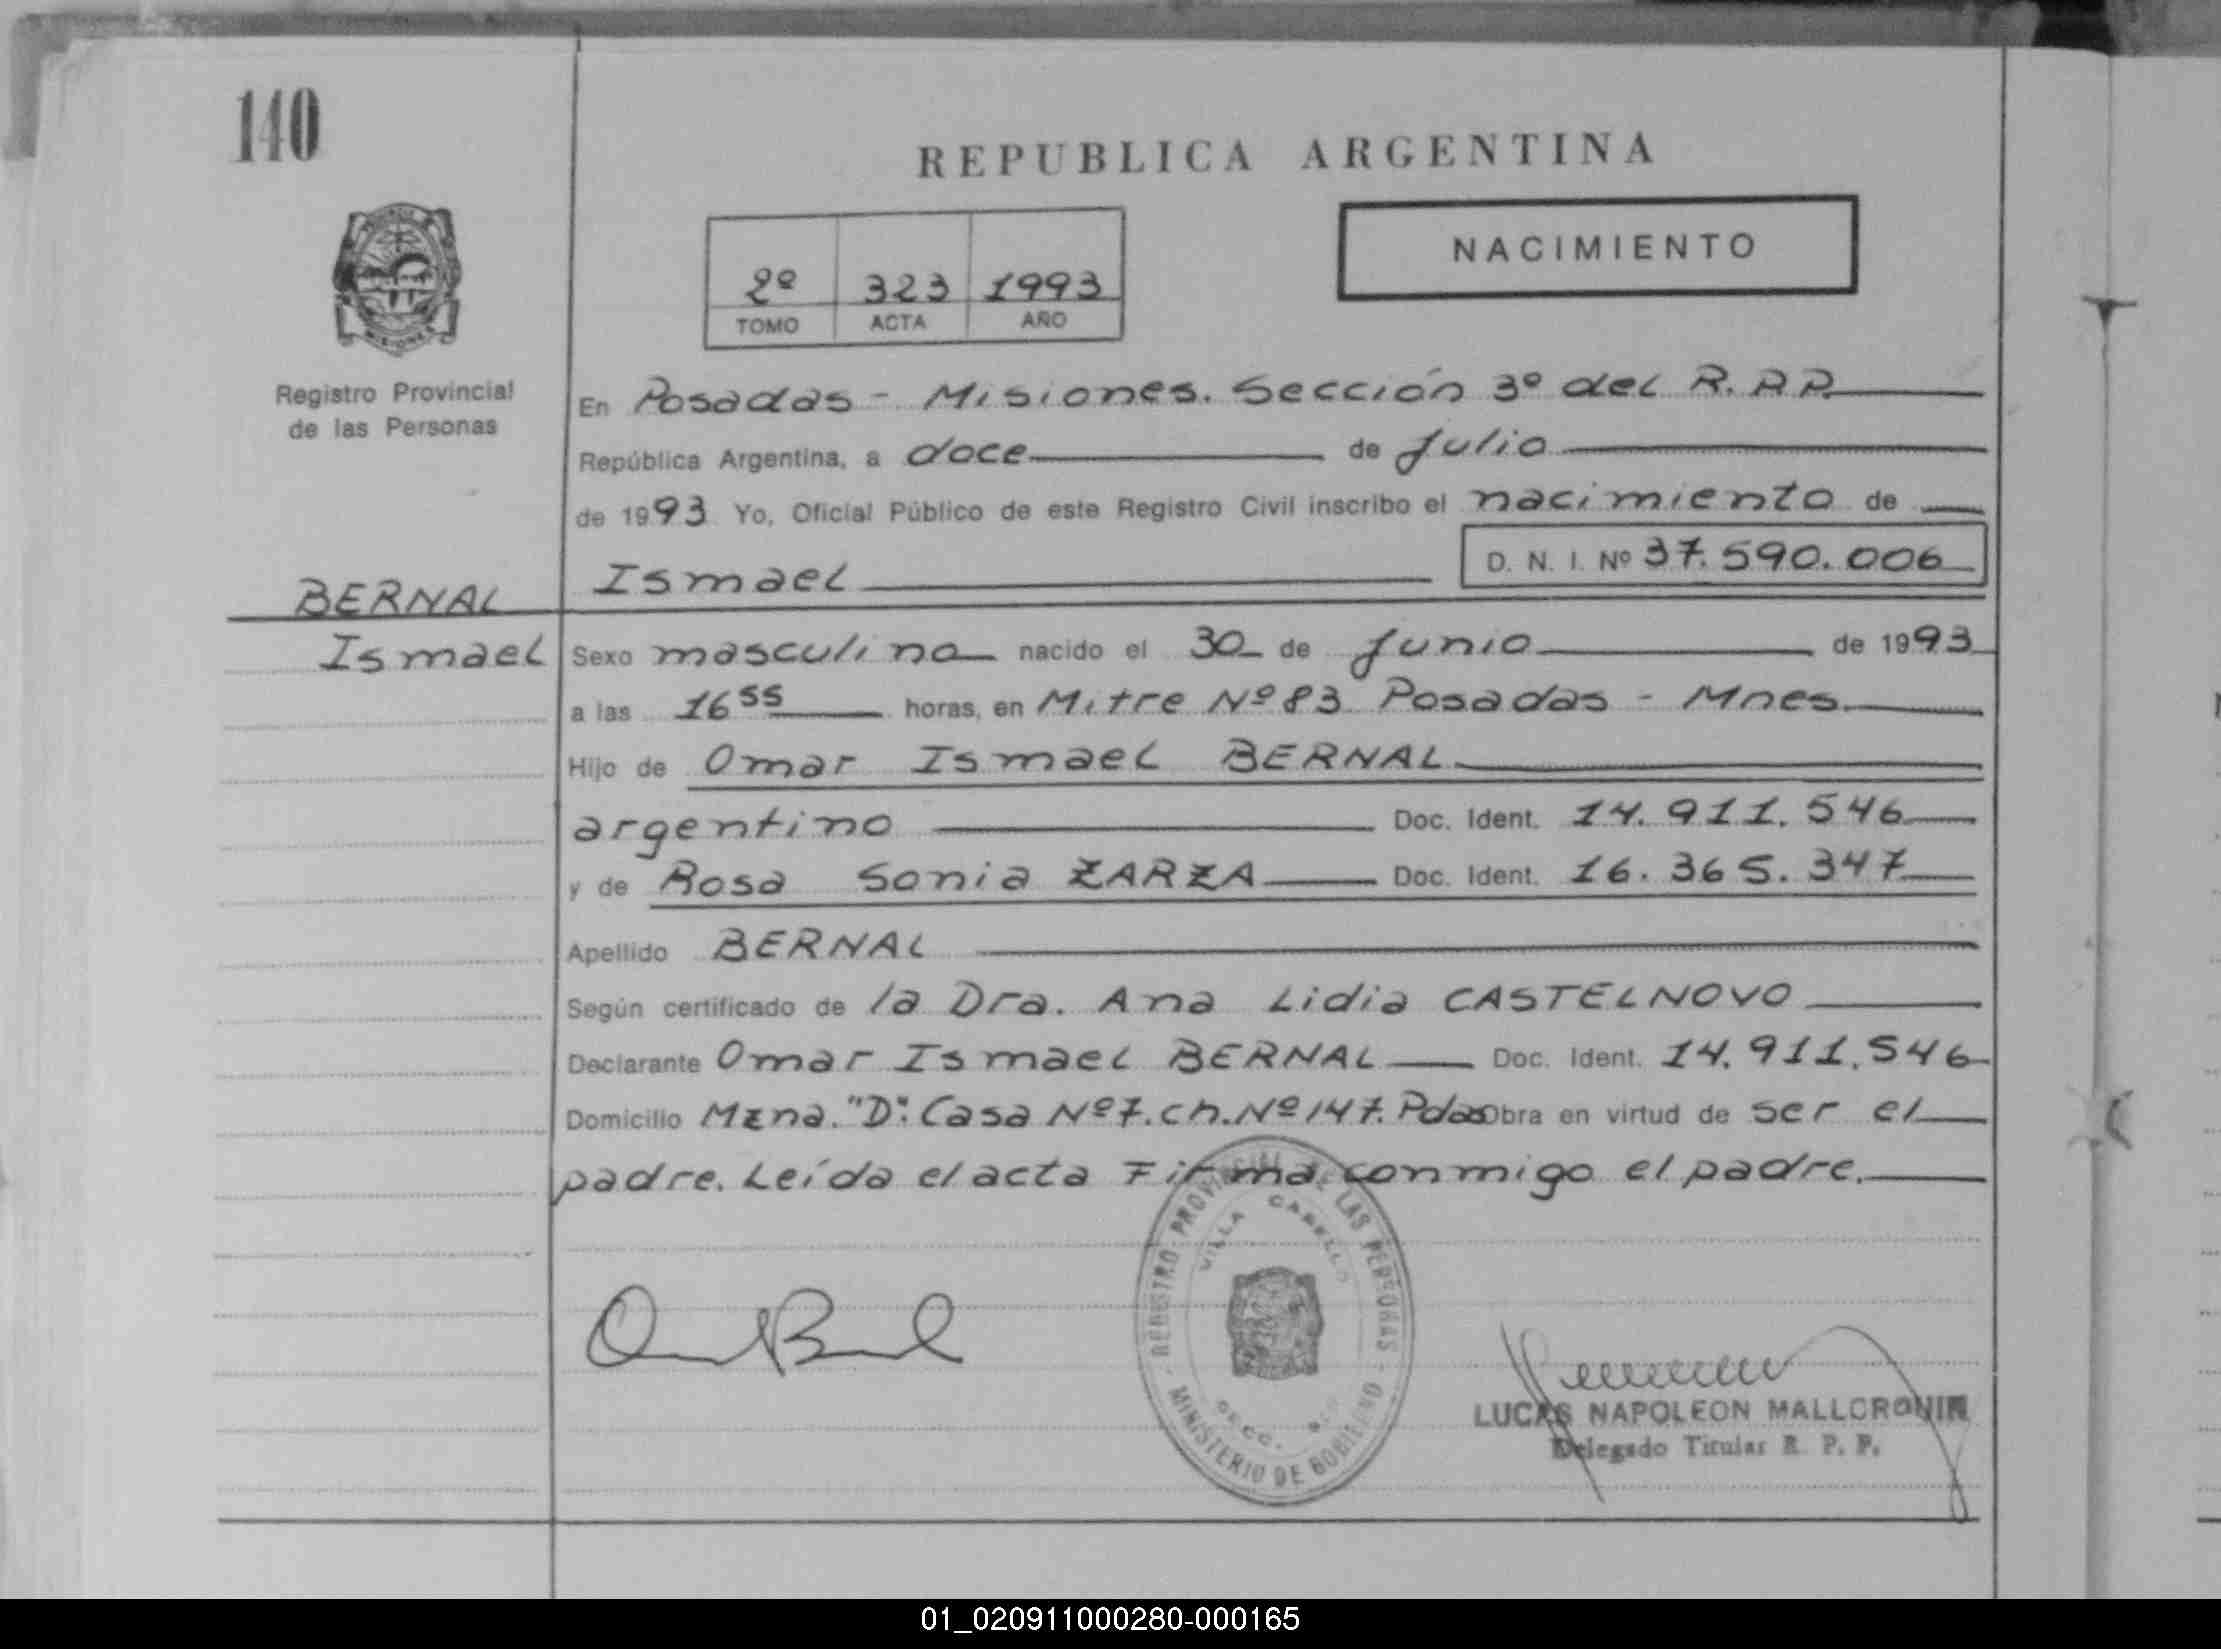 140
REPUBLICA ARGENTINA
NACIMIENTO
2º 323 1993
TOMO ACTA AÑO
MISIONES
Registro Provincial
de las Personas
En Posadas - Misiones. Sección 3º del R.P.P.
República Argentina, a doce de Julio
de 1993 Yo, Oficial Público de este Registro Civil inscribo el nacimiento de
D. N. I. Nº 37.590.006
Ismael
BERNAL
Ismael
Sexo masculino nacido el 30 de Junio de 1993
a las 16 55 horas, en Mitre Nº 83 Posadas - Mnes.
Hijo de Omar Ismael BERNAL
argentino Doc. Ident. 14.911.546
y de Rosa Sonia ZARZA Doc. Ident. 16.365.347
Apellido BERNAL
Según certificado de la Dra. Ana Lidia CASTELNOVO
Declarante Omar Ismael BERNAL Doc. Ident. 14.911.546
Domicilio Mzna. "D". Casa Nº 7. ch. Nº 147. Pdas Obra en virtud de ser el
padre. Leída el acta Firma conmigo el padre.
REGISTRO PROVINCIAL DE LAS PERSONAS
VILLA CABELLO
SECC.
MINISTERIO DE GOBIERNO
LUCAS NAPOLEON
Delegado Titular R. P. P.
01_020911000280-000165